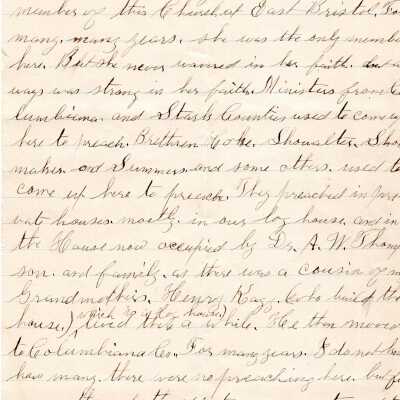 member of this Church, at East Bristol. Fo
many, many years. she was the only membe
here. But she never wavered in her faith. but a
ways was strong in her faith. Ministers from Co
lumbiana. and Stark Counties used to come u
here to preach. Brethren Shoewalter. Shoe
maker. and Summers and some others. used to
come up here to preach. They preached in priv
ate houses mostly. in our log house. and in
the House now occupied by Dr. A. W. Thomp
son. and family. as there was a cousin of m
Grandmothers. Henry Kagy. (who build the
house,) (which is a log house) lived there a while. He then moved
to Columbiana Co. For many years. I do not know
how many. there were no preaching here. but f